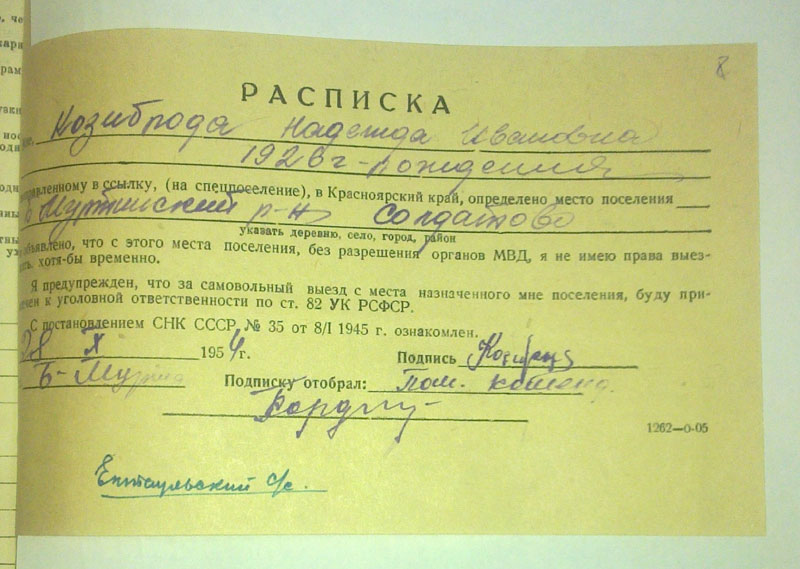 8
РАСПИСКА
Козиброда Надежда Ивановна
1926 г-рождения
правленному в ссылку, (на спецпоселение), в Красноярский край, определено место поселения
Б Муртинский р-н Солдатово
указать деревню, село, город, район
объявлено, что с этого места поселения, без разрешения органов МВД, я не имею права выез-
хотя-бы временно.
Я предупрежден, что за самовольный выезд с места назначенного мне поселения, буду при-
чен к уголовной ответственности по ст. 82 УК РСФСР.
С постановлением СНК СССР № 35 от 8/I 1945 г. ознакомлен.
28 X 1954 г. Подпись
Б-Мурта Подписку отобрал: Пом. коменд.
1262—о-05
с/с.